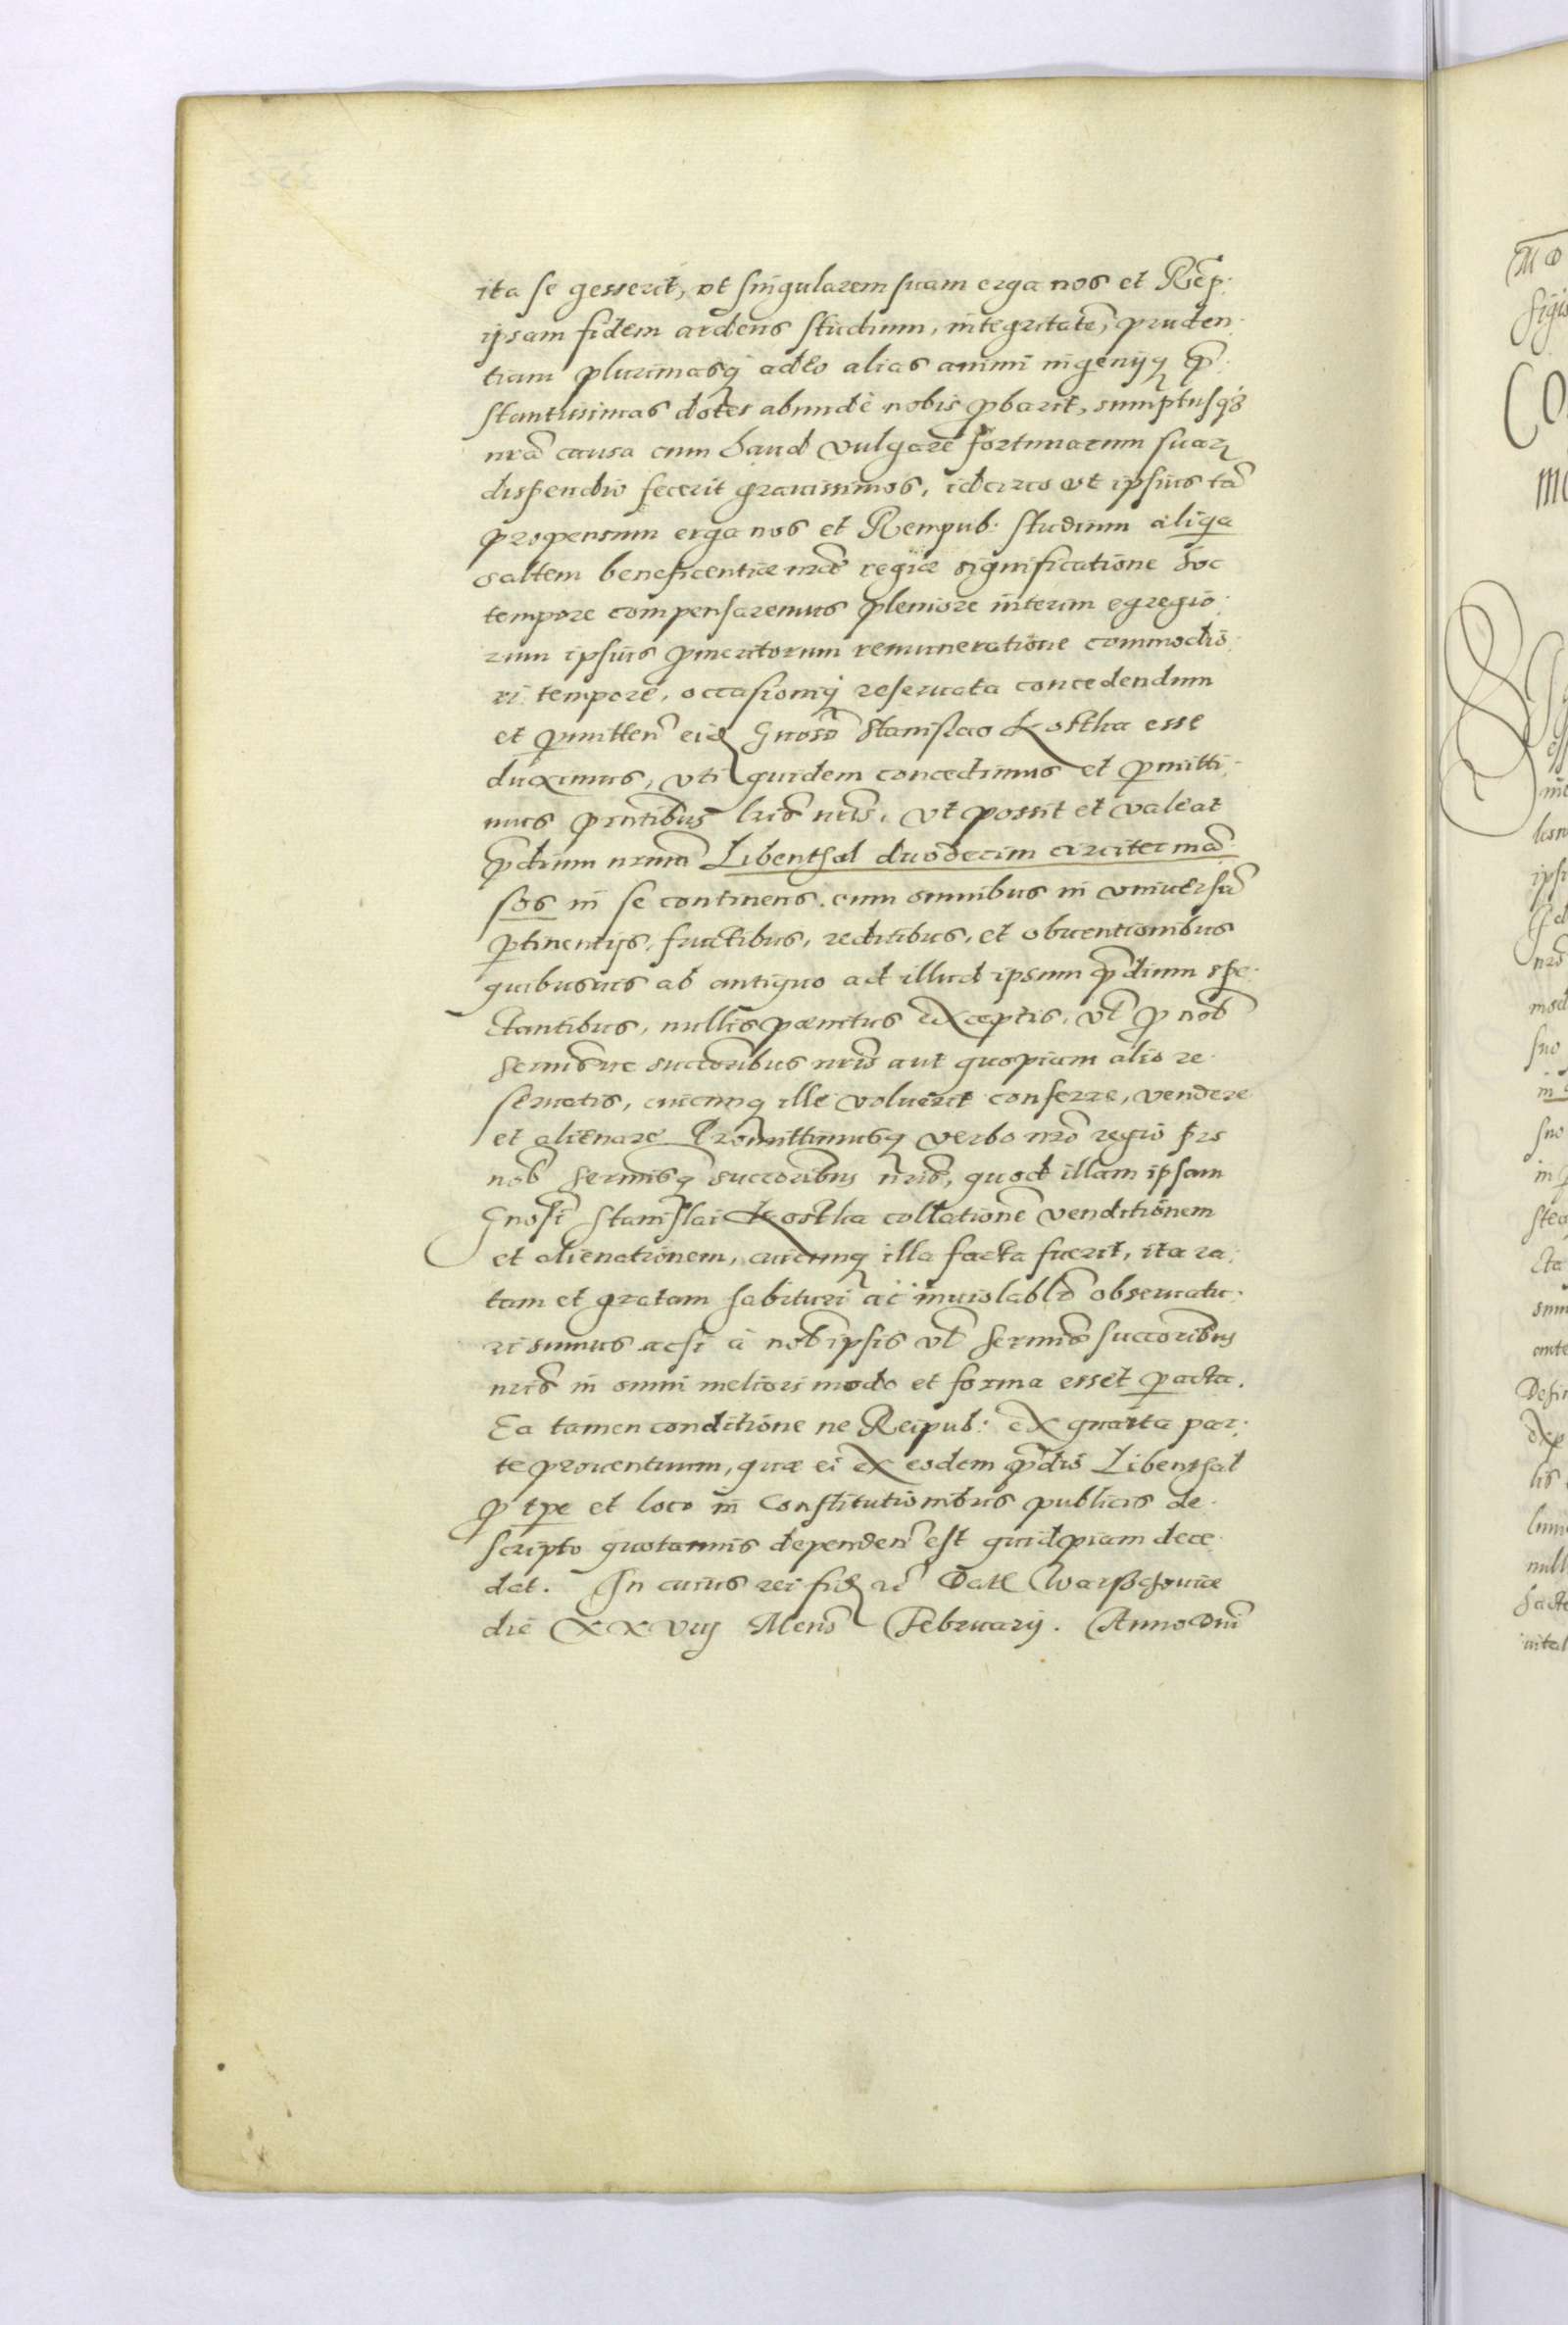 ita se gesserit, vt singularem suam erga nos et Remp:
ipsam fidem ardens studium, integritatē, pruden-
tiam plurimasq adeo alias animi ingenijq prę-
stantissimas dotes abunde nobis pbarit, sumptusq3
nrā causa cum haud vulgare fortunarum suar
dispendio fecerit grauissimos, idcirco vt ipsius tā
propensum erga nos et Rempub: studium aliqa
saltem beneficentiæ nrae regiæ significatione hoc
tempore compensaremus pleniore interim egregio-
rum ipsius pmeritorum remuneratione commodio-
ri tempore, occasioniq reseruata concedendum
et pmitten eid Gnoso Stanislao Kostka esse
duximus, vti quidem concedimus et pmitti-
mus pntibus lris nris, vt possit et valeat
prędium nrum Libenthal duodecim circiter man-
sos in se continens, cum omnibus in vniuersū
ptinentijs, fructibus, reditibus, et obuentionibus
quibusuis ab antiquo ad illud ipsum prędium spe-
ctantibus, nullis pænitus exceptis, vl p nob
sermisue succoribus nris aut quopiam alio re-
seruatis, cuicunq ille voluerit conferre, vendere
et alienare Promittimusq verbo nro regio pro
nob sermisq succoribus nris, quod illam ipsam
Gnosi Stanislai Kostka collationē venditionem
et alienationem, cuicunq illa facta fuerit, ita ra-
tam et gratam habituri ac inuiolablr obseruatu-
ri sumus acsi à nob ipsis vl sermis succoribus
nris in omni meliori modo et forma esset pacta.
Ea tamen conditione ne Reipub: ex quarta par-
te prouentuum, quæ ei ex eodem prędio Libenthal
p tpe et loco in Constitutionibus publicis de-
scripto quotannis dependen est quidpiam dece-
dat. In cuius rei fid rc Dat Warschouiæ
die XXVIIJ Mens Februarij. Anno Dni